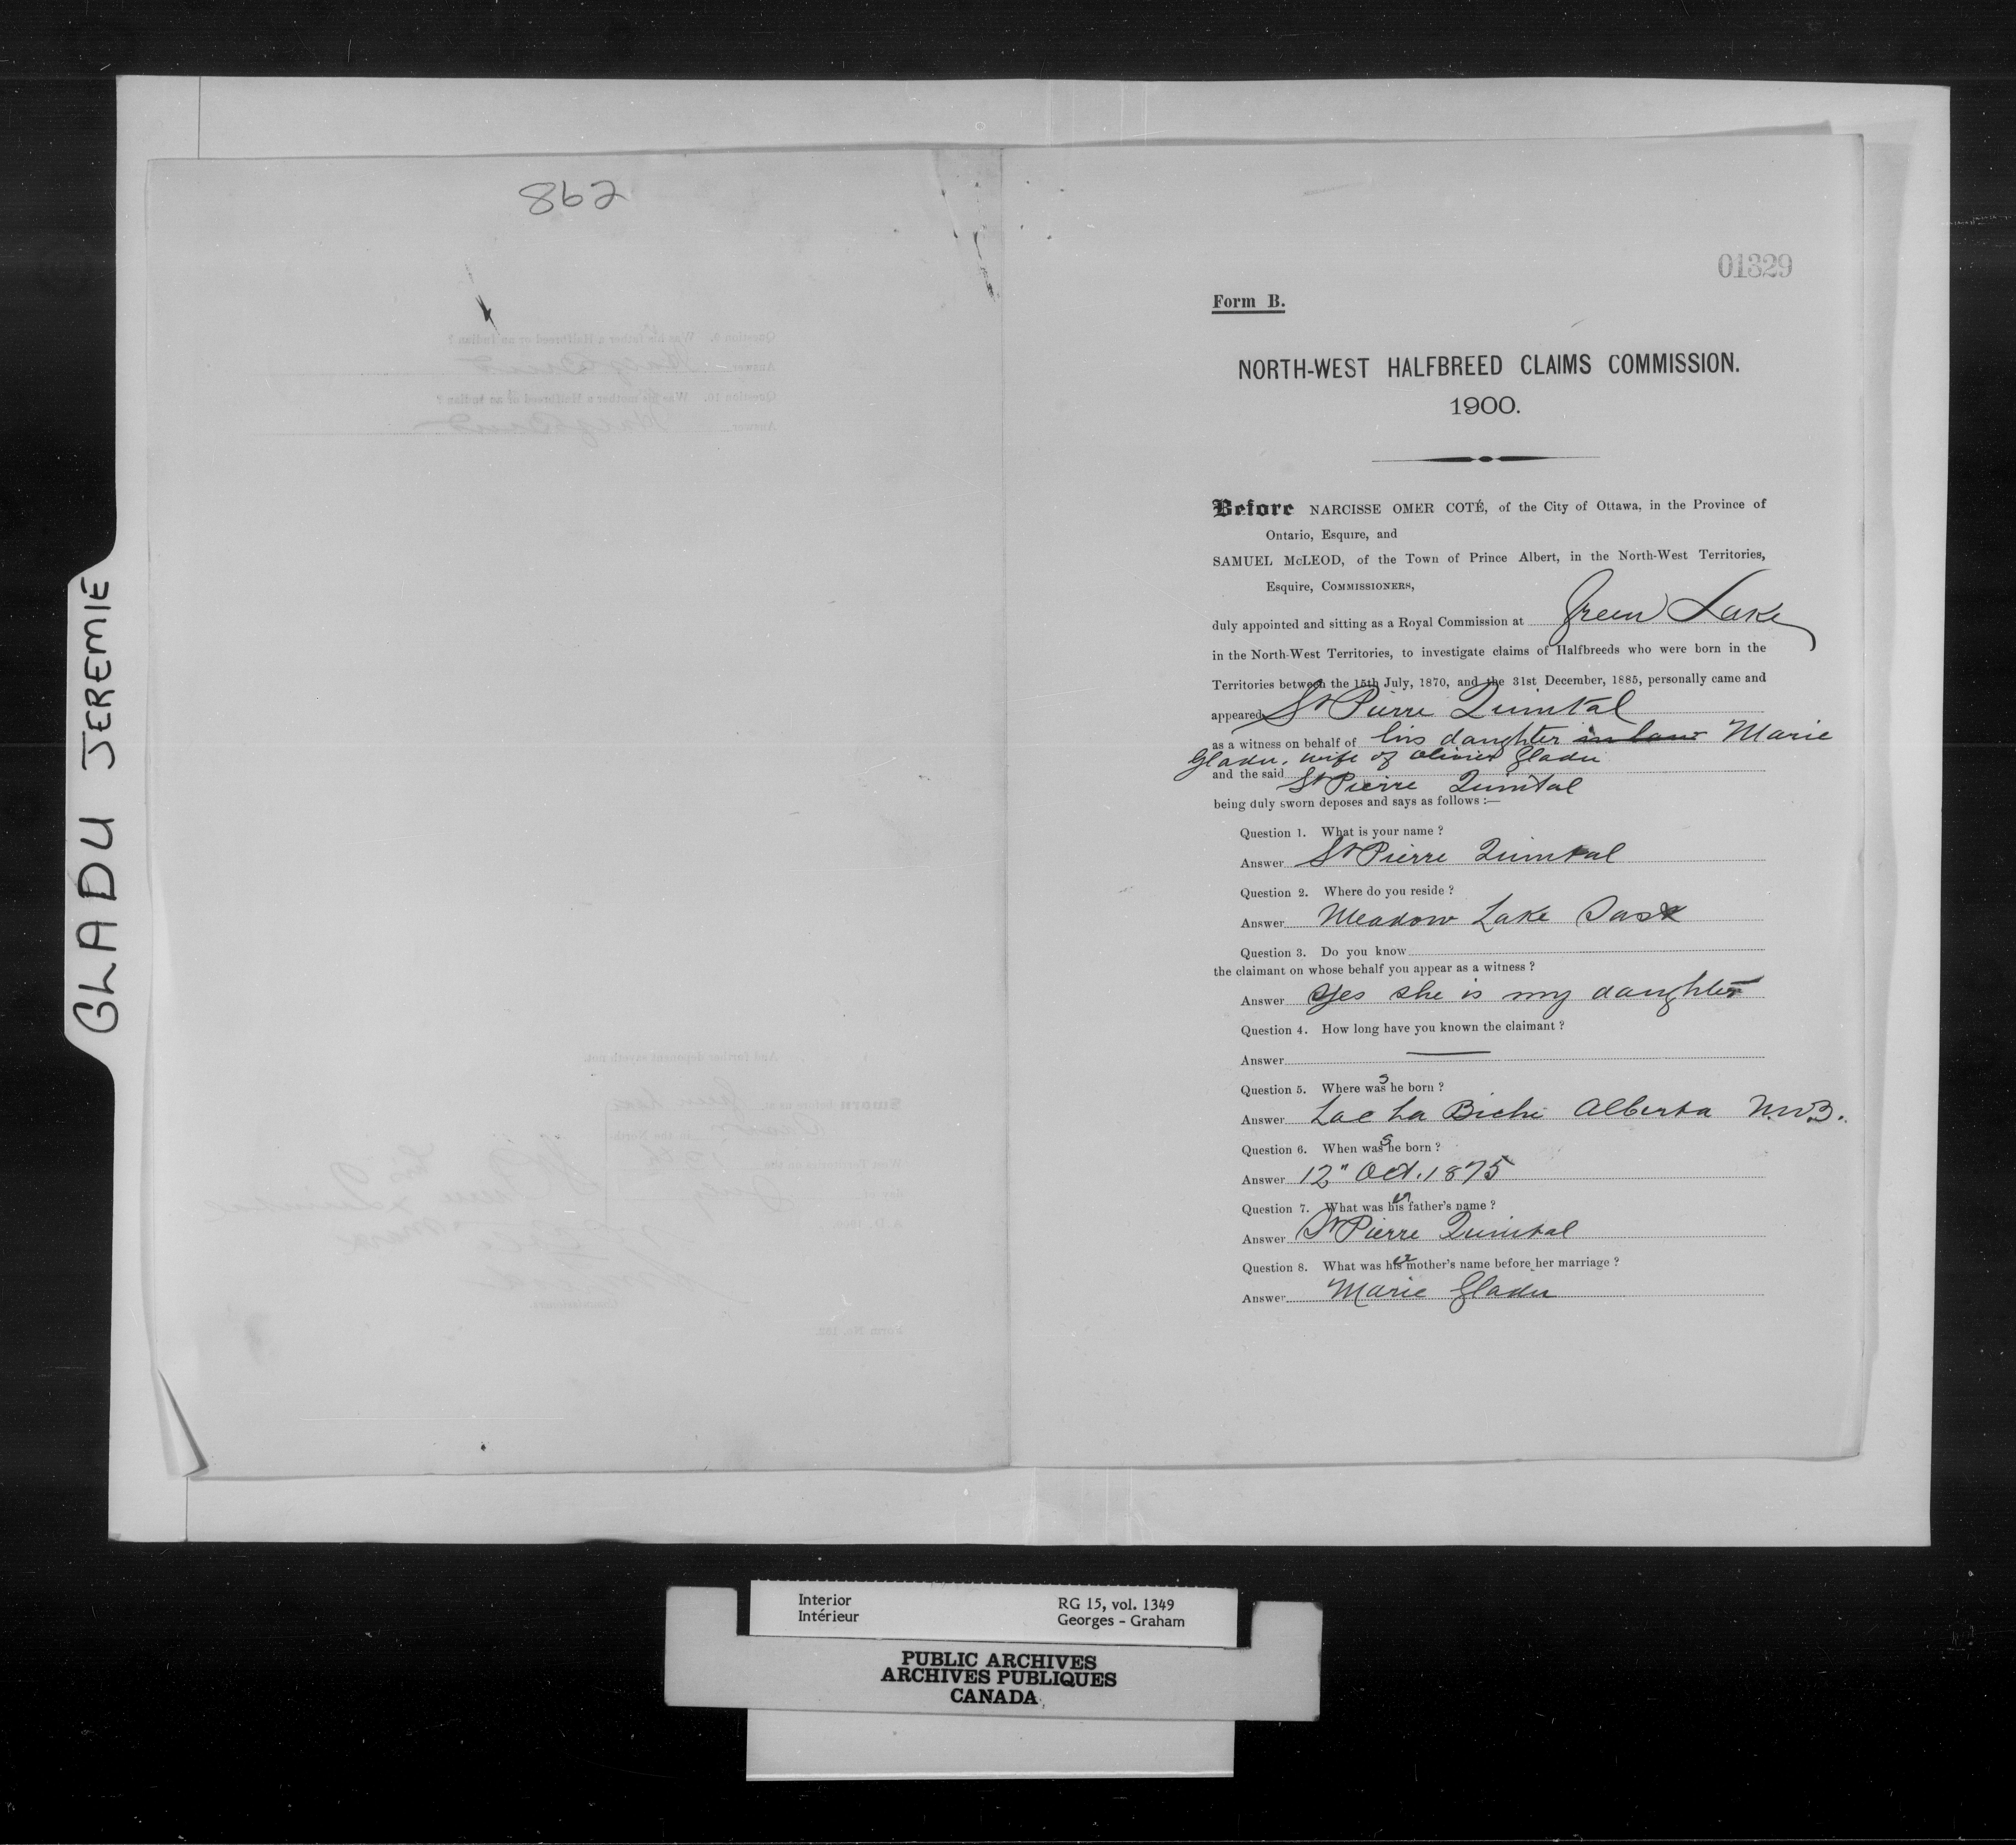 862
GLADU JEREMIE
01329
Form B.
NORTH-WEST HALFBREED CLAIMS COMMISSION.
1900.
Before NARCISSE OMER COTÉ, of the City of Ottawa, in the Province of
Ontario, Esquire, and
SAMUEL McLEOD, of the Town of Prince Albert, in the North-West Territories,
Esquire, COMMISSIONERS,
duly appointed and sitting as a Royal Commission at Green Lake
in the North-West Territories, to investigate claims of Halfbreeds who were born in the
Territories between the 15th July, 1870, and the 31st December, 1885, personally came and
appeared St Pierre Quintal
as a witness on behalf of his daughter in law Marie
Gladu, wife of Olivier Gladu
and the said St Pierre Quintal
being duly sworn deposes and says as follows :—
Question 1. What is your name ?
Answer St Pierre Quintal
Question 2. Where do you reside ?
Answer Meadow Lake Sask
Question 3. Do you know
the claimant on whose behalf you appear as a witness ?
Answer Yes she is my daughter
Question 4. How long have you known the claimant ?
Answer —
Question 5. Where was she born ?
Answer Lac La Biche Alberta
Question 6. When was she born ?
Answer 12" Oct. 1875
Question 7. What was his er father's name ?
Answer St Pierre Quintal
Question 8. What was his er mother's name before her marriage ?
Answer Marie Gladu
Interior
Intérieur
RG 15, vol. 1349
Georges - Graham
PUBLIC ARCHIVES
ARCHIVES PUBLIQUES
CANADA